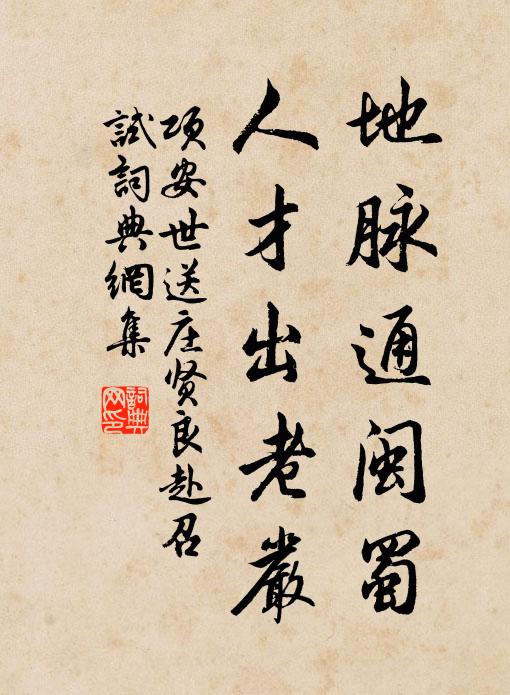 地脉通闽蜀
人才出老嚴
项安世送庄贤良赴召
試詞典網集
詞典網印